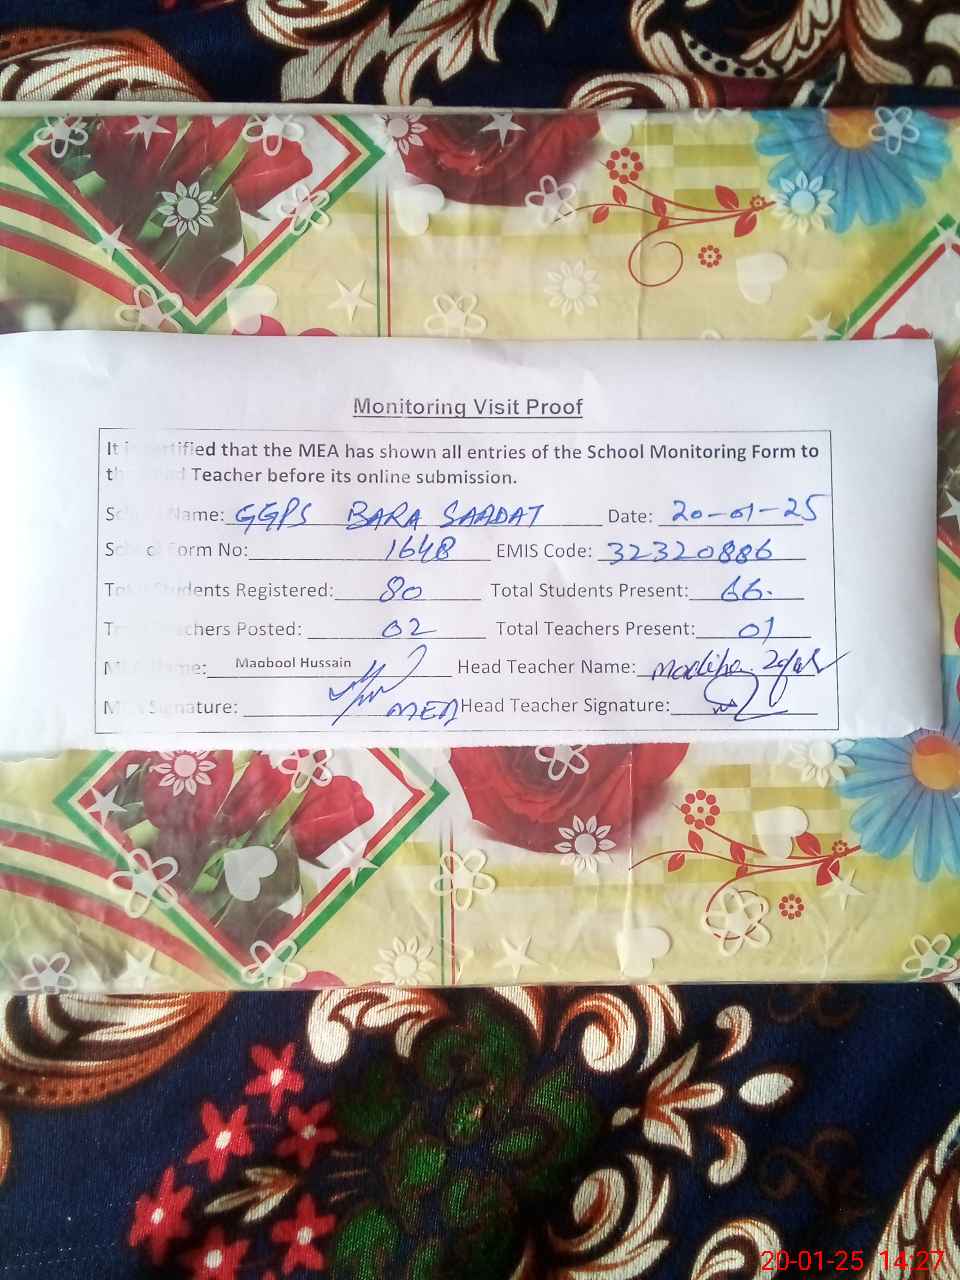 Monitoring Visit Proof
It is certified that the MEA has shown all entries of the School Monitoring Form to
the Head Teacher before its online submission.
School Name: GGPS BARA SAADAT Date: 20-01-25
School Form No: 1648 EMIS Code: 32320886
Total Students Registered: 80 Total Students Present: 66.
Total Teachers Posted: 02 Total Teachers Present: 01
MEA Name: Maqbool Hussain Head Teacher Name: Madiha
MEA Signature: MEA Head Teacher Signature:
20-01-25 14:27